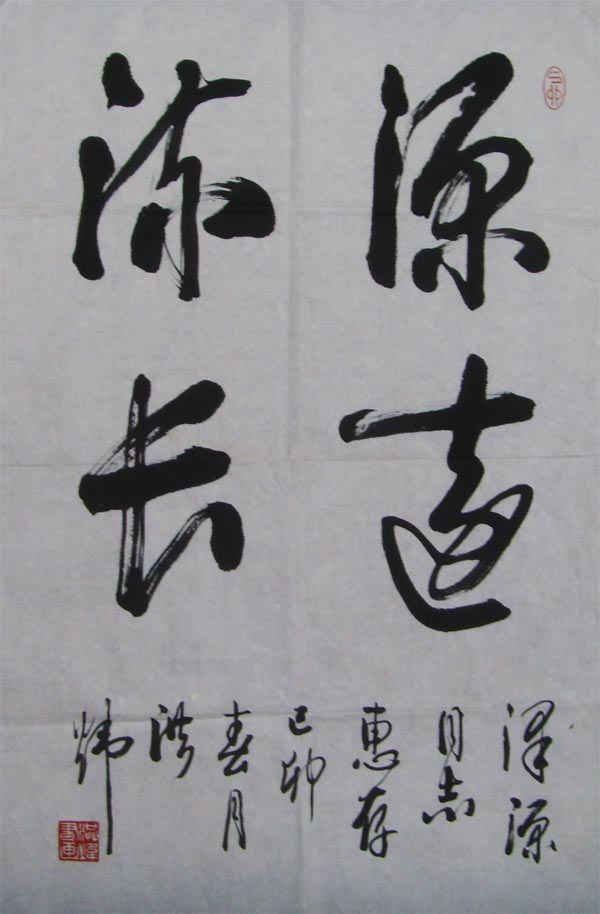 源遠
流长
泽源
同志
惠存
己卯
春月
洪
炜